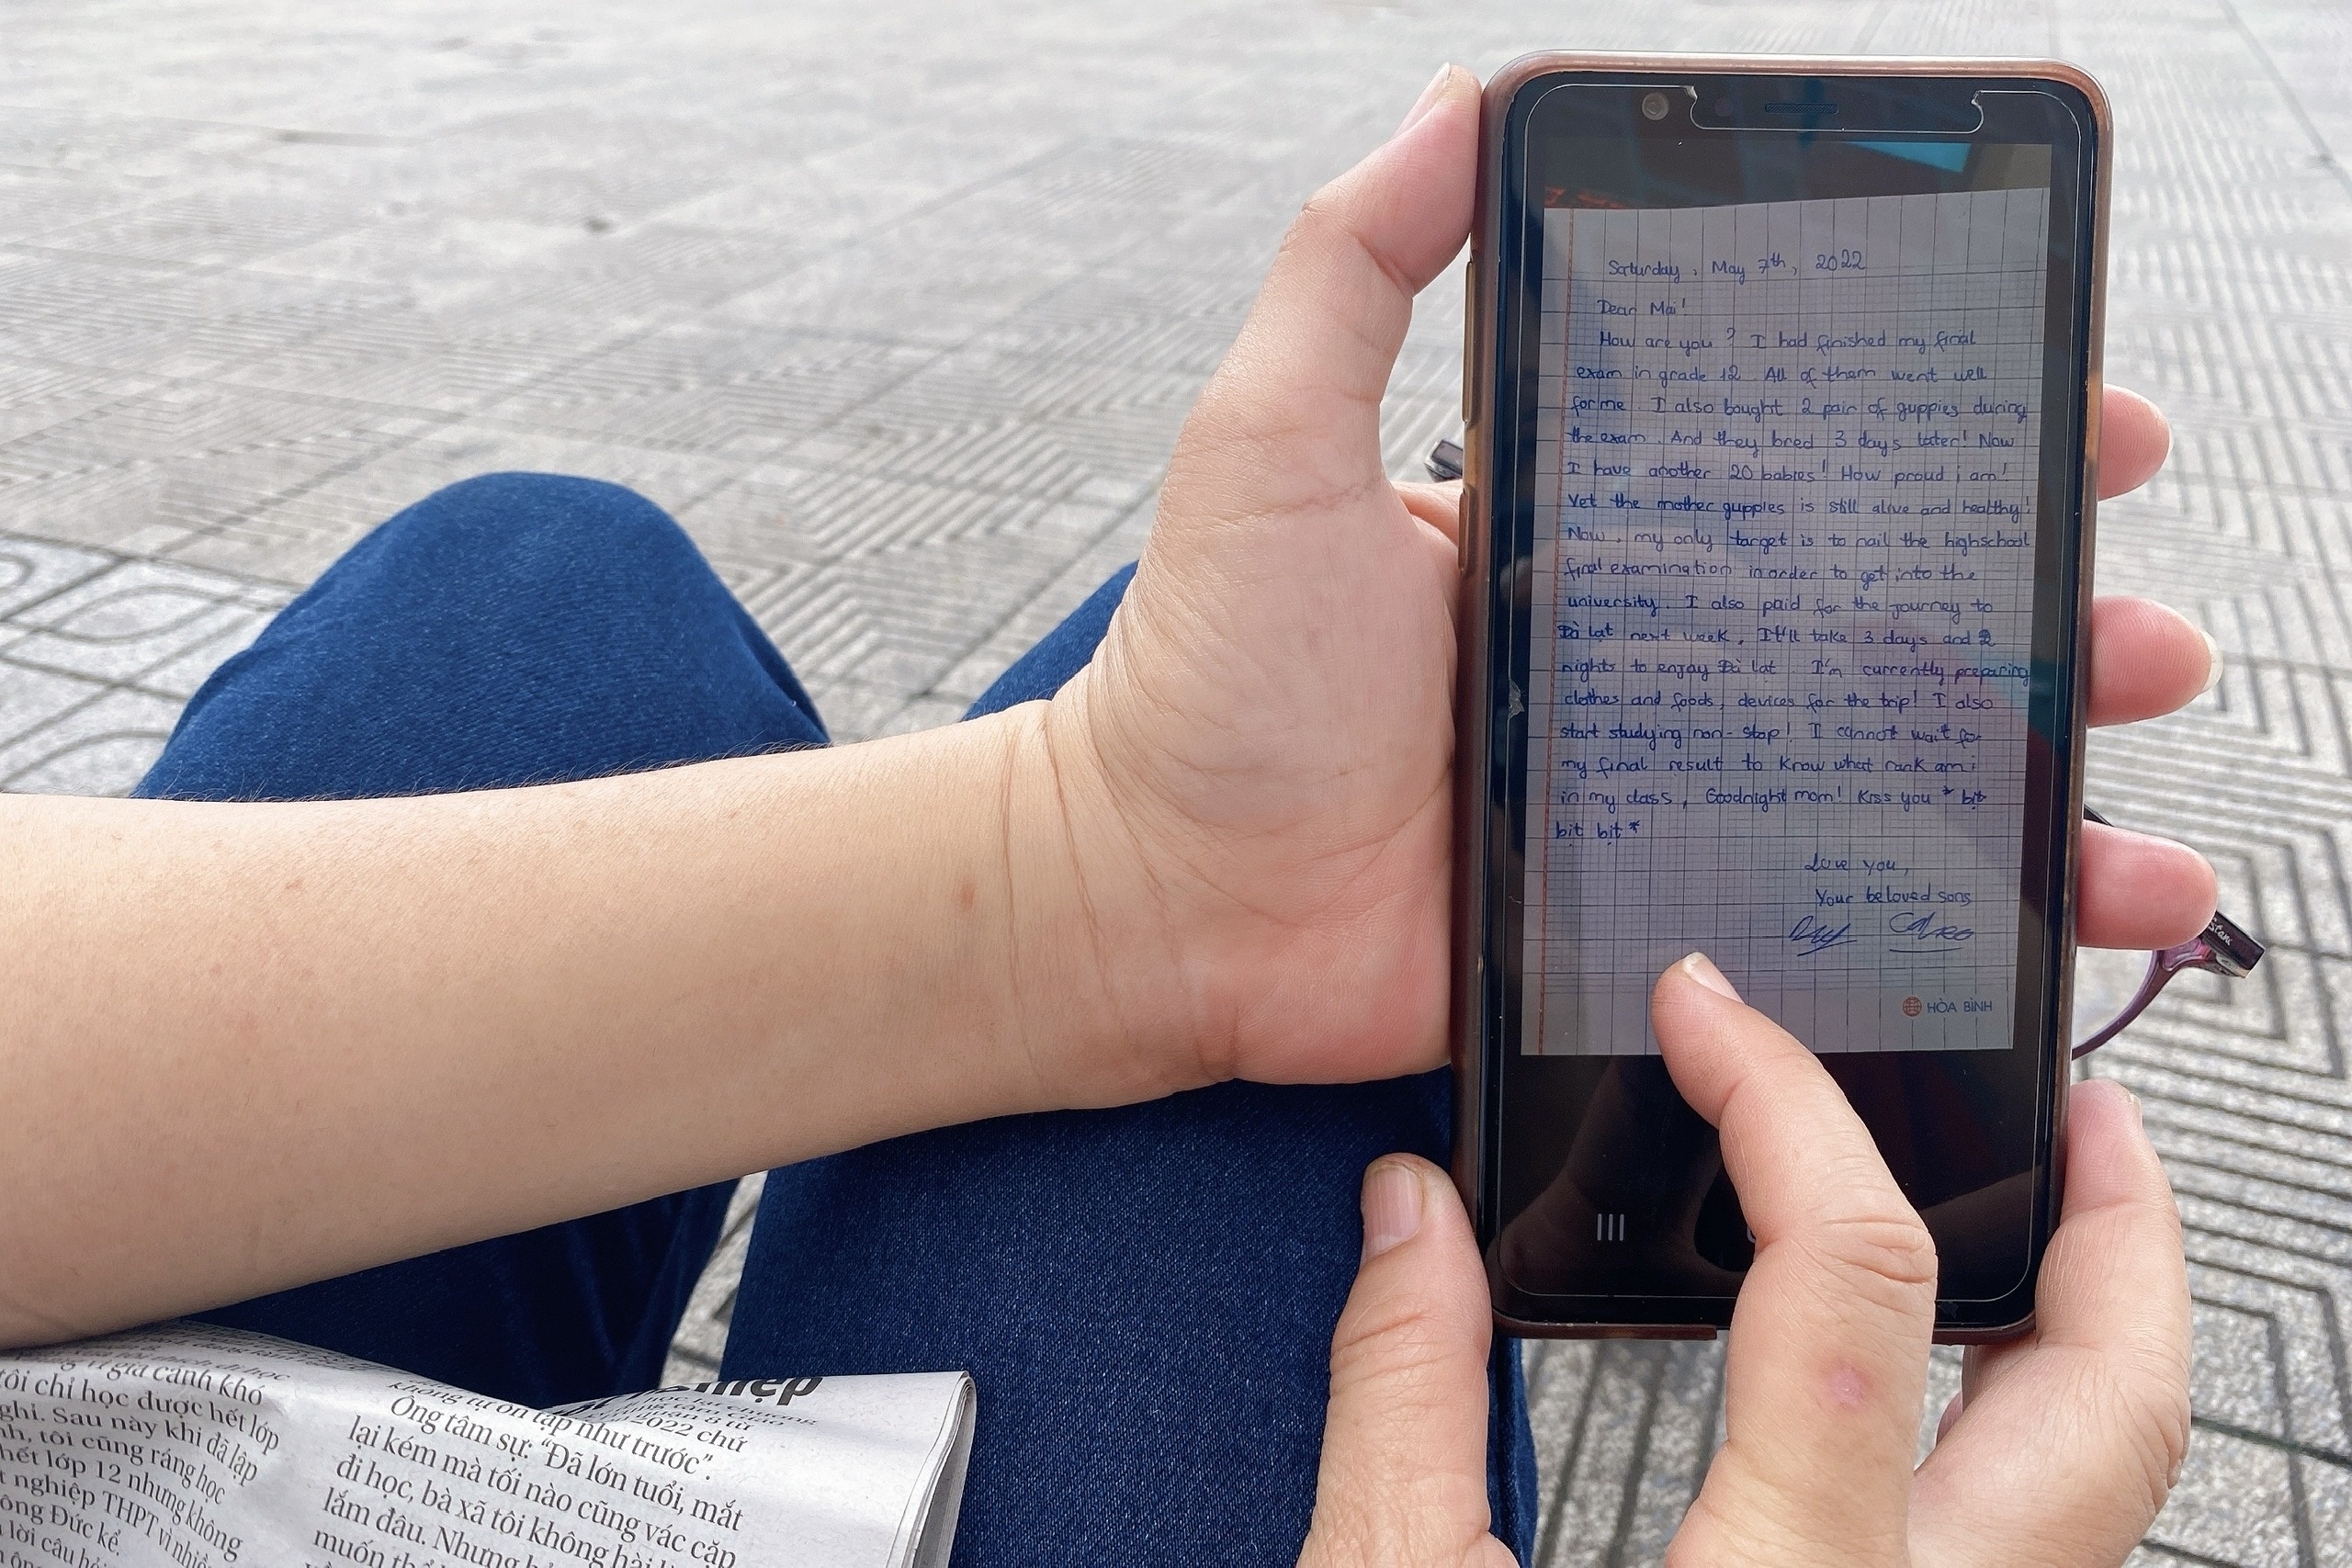 Saturday, May 7th, 2022
Dear Mai!
How are you? I had finished my final
exam in grade 12. All of them went well
for me. I also bought 2 pair of guppies during
the exam. And they bred 3 days later! Now
I have another 20 babies! How proud i am!
Yet the mother guppies is still alive and healthy!
Now, my only target is to nail the highschool
final examination in order to get into the
university. I also paid for the journey to
Đà lạt next week. It'll take 3 days and 2
nights to enjoy Đà lạt. I'm currently preparing
clothes and foods, devices for the trip! I also
start studying non-stop! I cannot wait for
my final result to know what rank am i
in my class, Goodnight mom! Kiss you * bịt
bịt bịt *
Love you,
Your beloved sons
HÒA BÌNH
vì gia cảnh khó
tôi chỉ học được hết lớp
nghỉ. Sau này khi đã lập
tôi cũng ráng học
hết lớp 12 nhưng không
nghiệp THPT vì nhiều
ông Đức kể.
lời câu
không tự ôn tập như trước".
Ông tâm sự: "Đã lớn tuổi, mắt
lại kém mà tối nào cũng vác cặp
đi học, bà xã tôi không hài
lắm đâu. Nhưng
muốn
2022 chứ